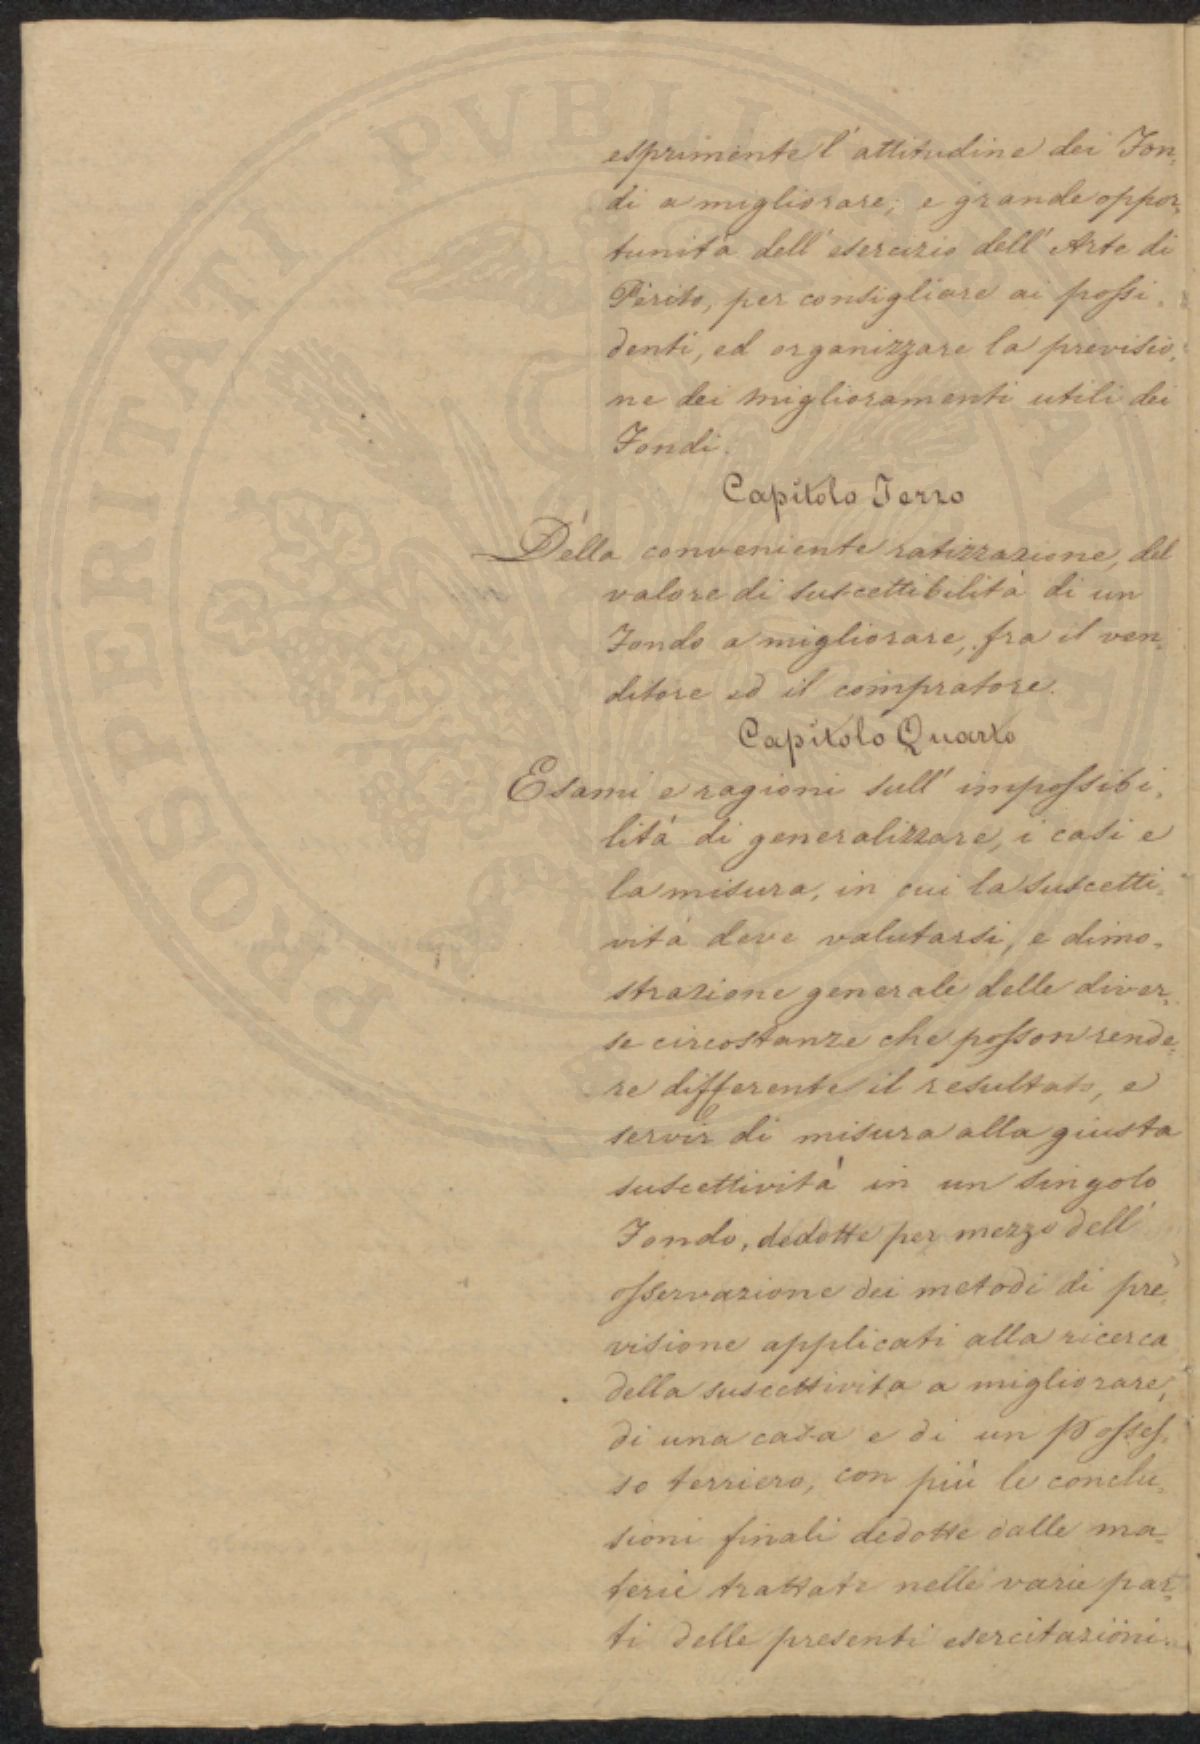 PROSPERITATI PUBLICAE
esprimente l'attitudine dei Fon=
di a migliorare; e grande oppor=
tunità dell'esercizio dell'Arte di
Perito, per consigliare ai possi=
denti, ed organizzare la previsio=
ne dei miglioramenti utili dei
Fondi.
Capitolo Terzo
Della conveniente ratizzazione, del
valore di suscettibilità di un
Fondo a migliorare, fra il ven=
ditore ed il compratore.
Capitolo Quarto
Esami e ragioni sull'impossibi=
lità di generalizzare, i casi e
la misura, in cui la suscetti=
vità deve valutarsi, e dimo=
strazione generale delle diver=
se circostanze che posson rende=
re differente il resultato, e
servir di misura alla giusta
suscettività in un singolo
Fondo, dedotte per mezzo dell'
osservazione dei metodi di pre=
visione applicati alla ricerca
della suscettività a migliorare,
di una casa e di un Posses=
so terriero, con più le conclu=
sioni finali dedotte dalle ma=
terie trattate nelle varie par=
ti delle presenti esercitazioni.